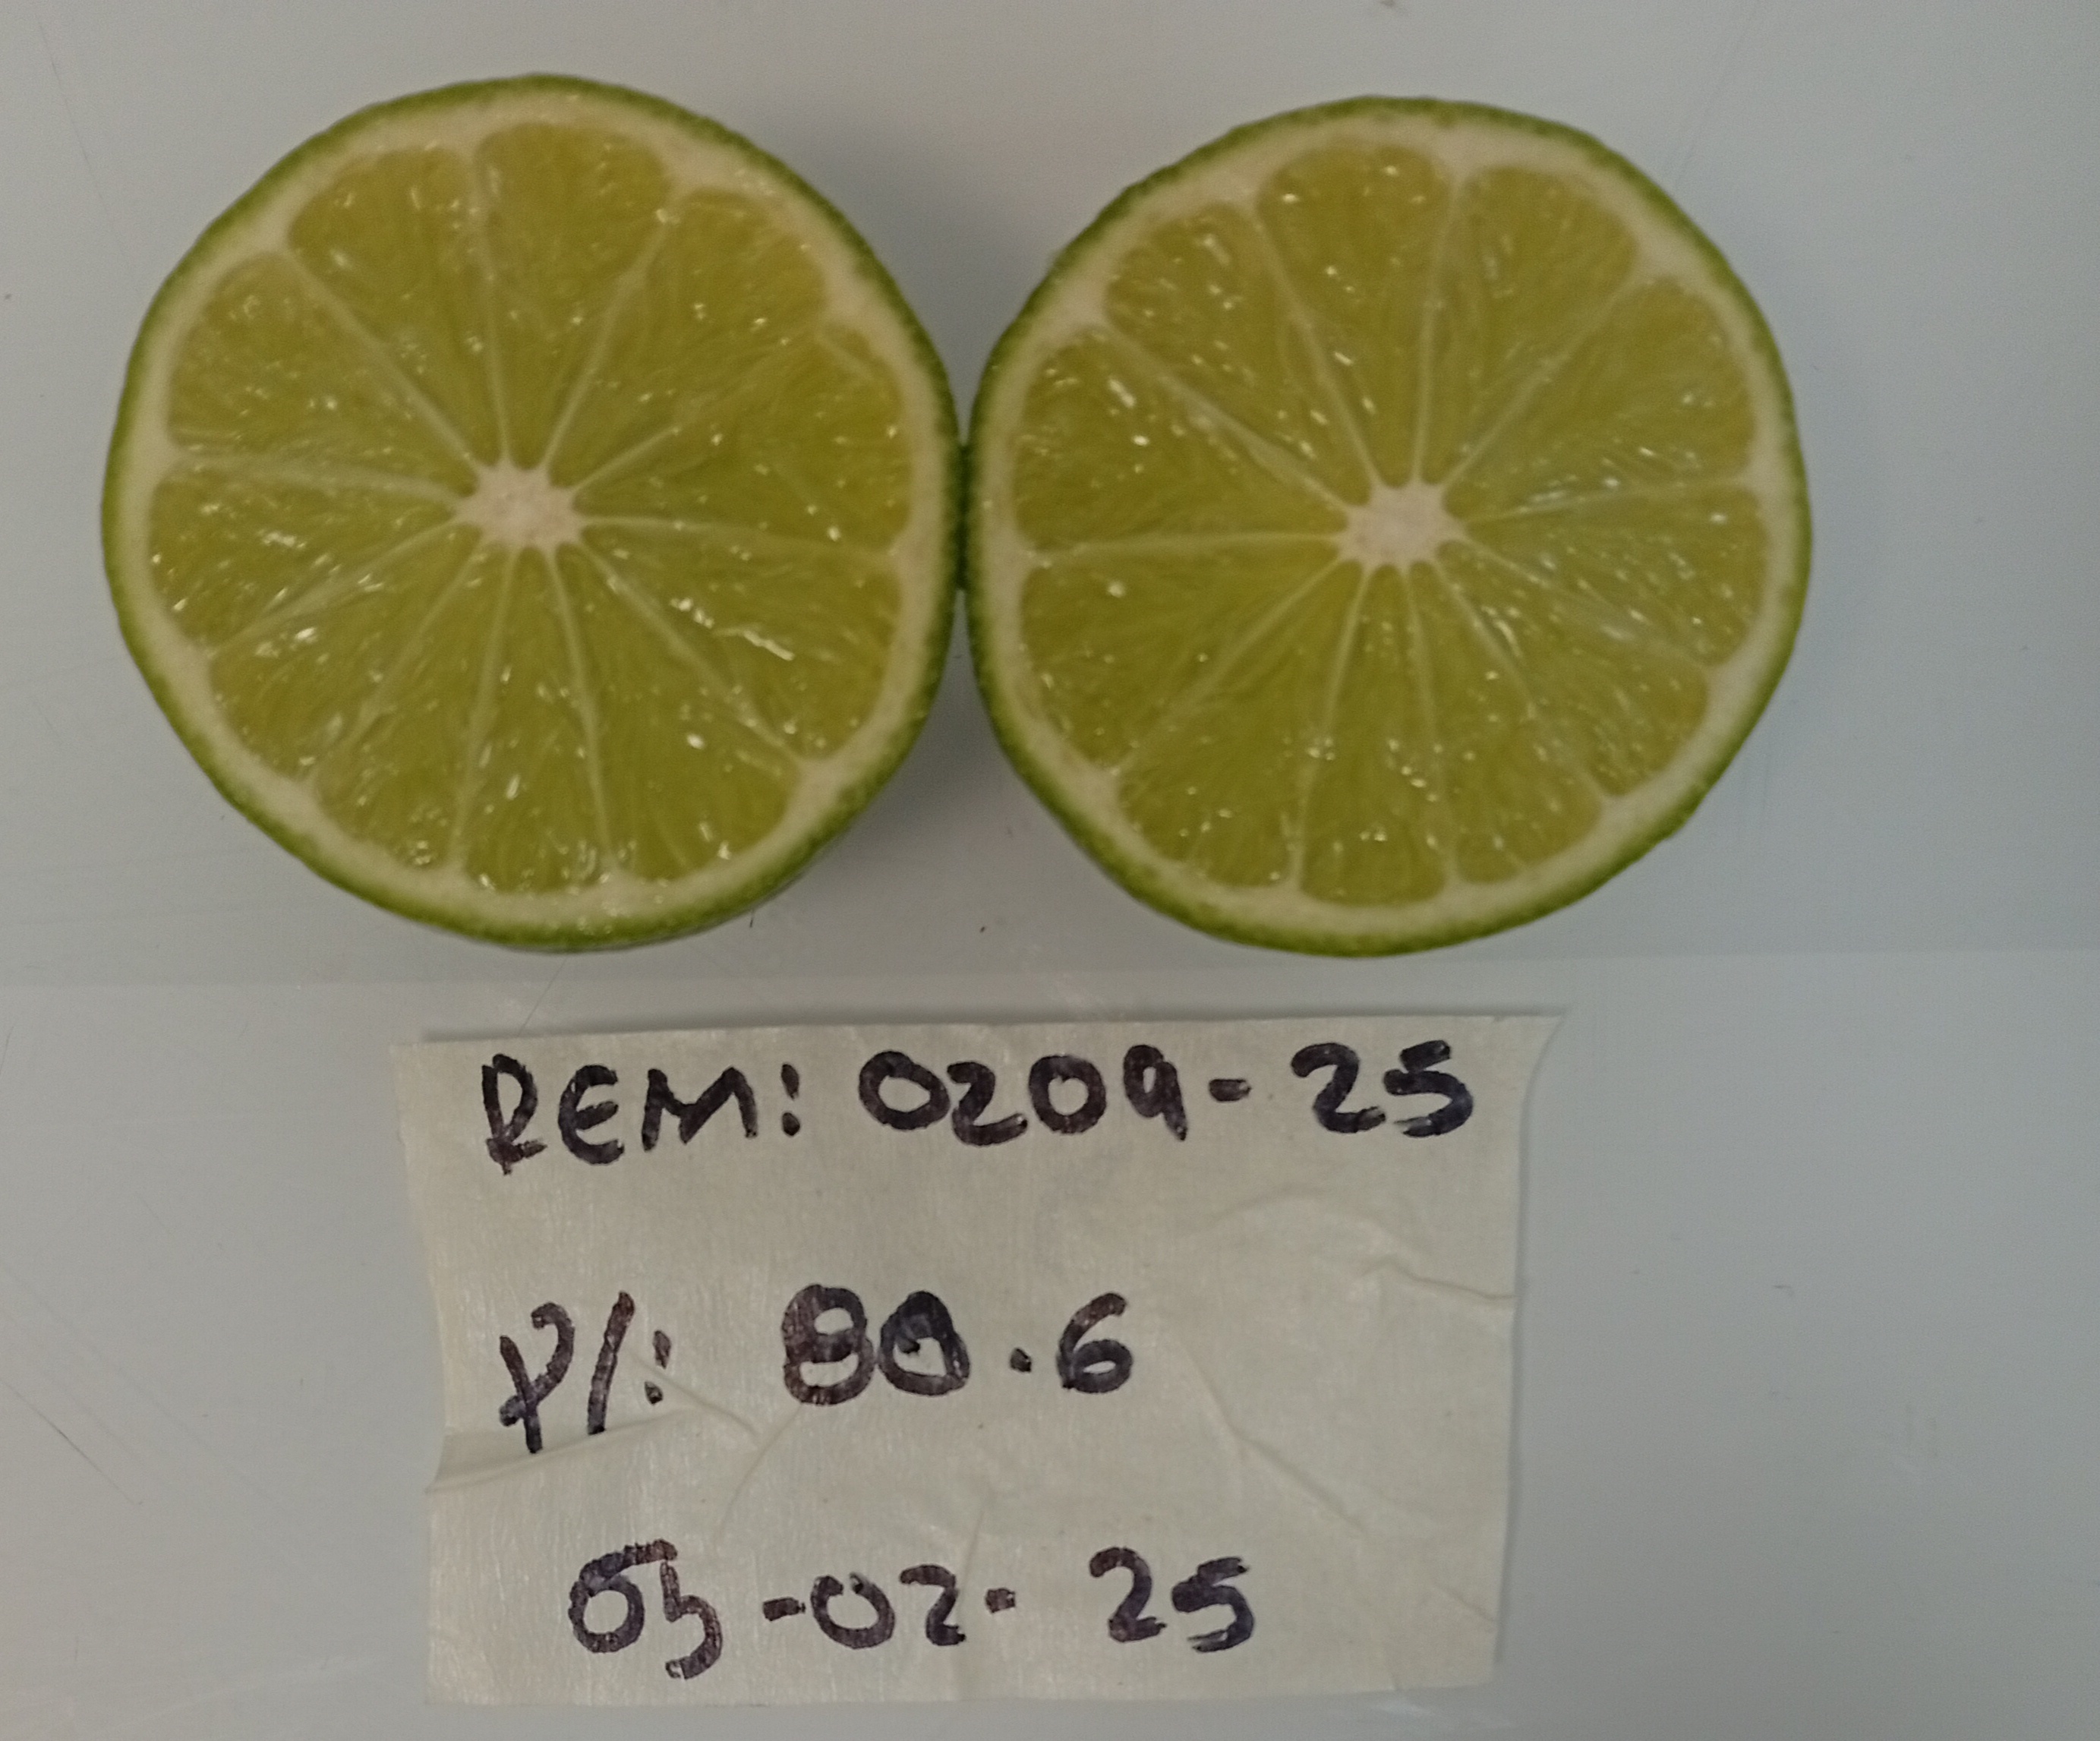 REM: 0209-25
P/: 80.6
05-02-25